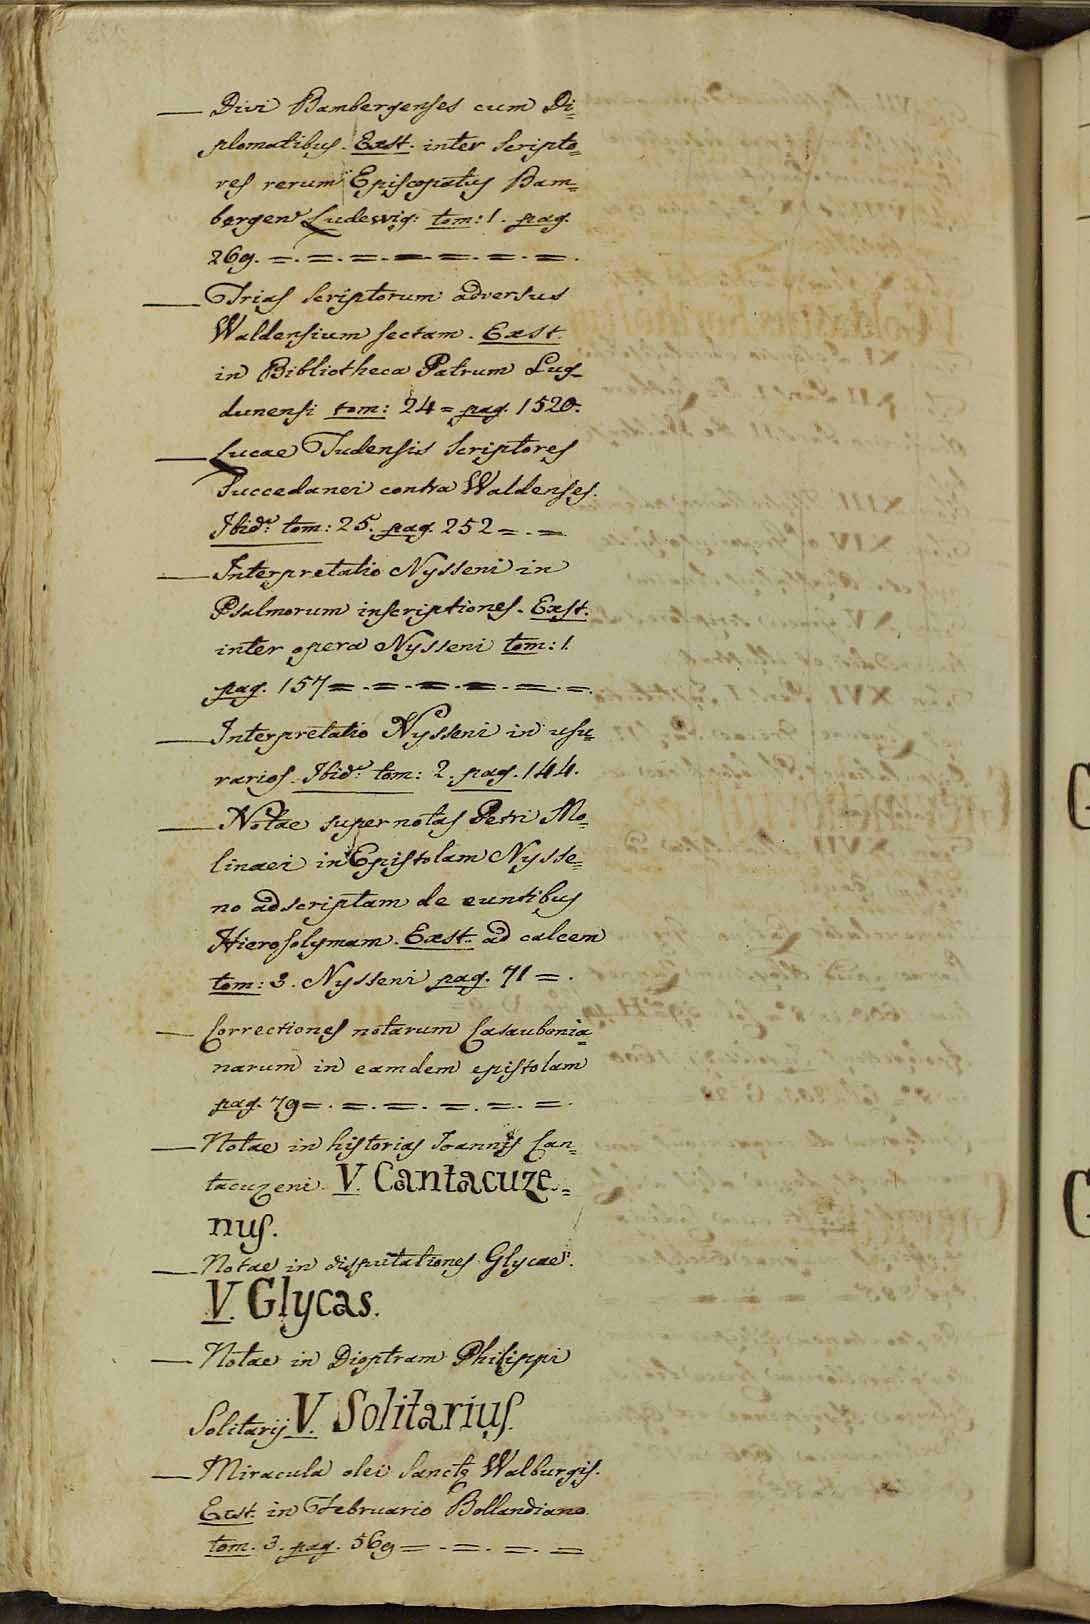 — Divi Bambergenses cum Di-
plomatibus. Exst. inter scripto-
res rerum Episcopatus Bam-
bergen. Ludewig: tom: 1. pag.
269. =. =. =. =. =. =. =.
— Trias scriptorum adversus
Waldensium sectam. Exst.
in Bibliotheca Patrum Lug-
dunensi tom: 24 = pag. 1520.
— Lucae Tudensis scriptores
succedanei contra Waldenses.
Ibid. tom: 25. pag. 252 =. =
— Interpretatio Nysseni in
Psalmorum inscriptiones. Exst.
inter opera Nysseni tom: 1
pag. 157 =. =. =. =. =. =.
— Interpretatio Nysseni in usu-
rarios. Ibid. tom: 2. pag. 144.
— Notae super notas Petri Mo-
linaei in Epistolam Nysse-
no adscriptam de euntibus
Hierosolymam. Exst. ad calcem
tom: 3. Nysseni pag. 71 =.
— Correctiones notarum Casaubonia-
narum in eamdem epistolam
pag. 79 =. =. =. =. =. =.
— Notae in historias Joannis Can-
tacuzeni. V. Cantacuze-
nus.
— Notae in disputationes Glycae.
V. Glycas.
— Notae in Dioptram Philippi
Solitarij V. Solitarius.
— Miracula olei Sanctę Walburgis.
Exst. in Februario Bollandiano
tom. 3. pag. 569 =. =. =. =